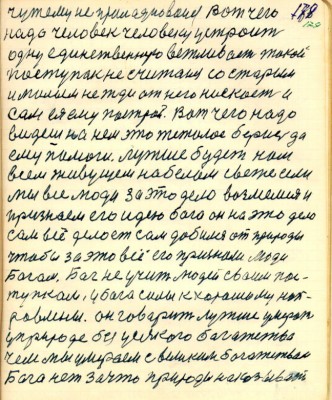 чутему не прикладована Вот чего 128
надо человек человеку устроит 120
одну единственную вежливаст такой
поступак не считаи со старым
и малым не жди от него ни скаго и
сам ему построй. Вот чего надо
видеш на нем это тежолае бериса да
ему помоги. лутше будет нам
всем живущем на белам свеже если
мы все люди за это дело возмемся и
признаем его идею бога он на это дело
сам всё делает сам добился от природы
чтобы за это всё его признали люди
Богам. Бог не учит людей своим пос-
тупкам, у бога силы к хорошаму нап-
равлены. он говарит лутше умерат
у природе без усякого багатства
чем мы умераем с великим багатствам
Бога нет за что природы наказыват